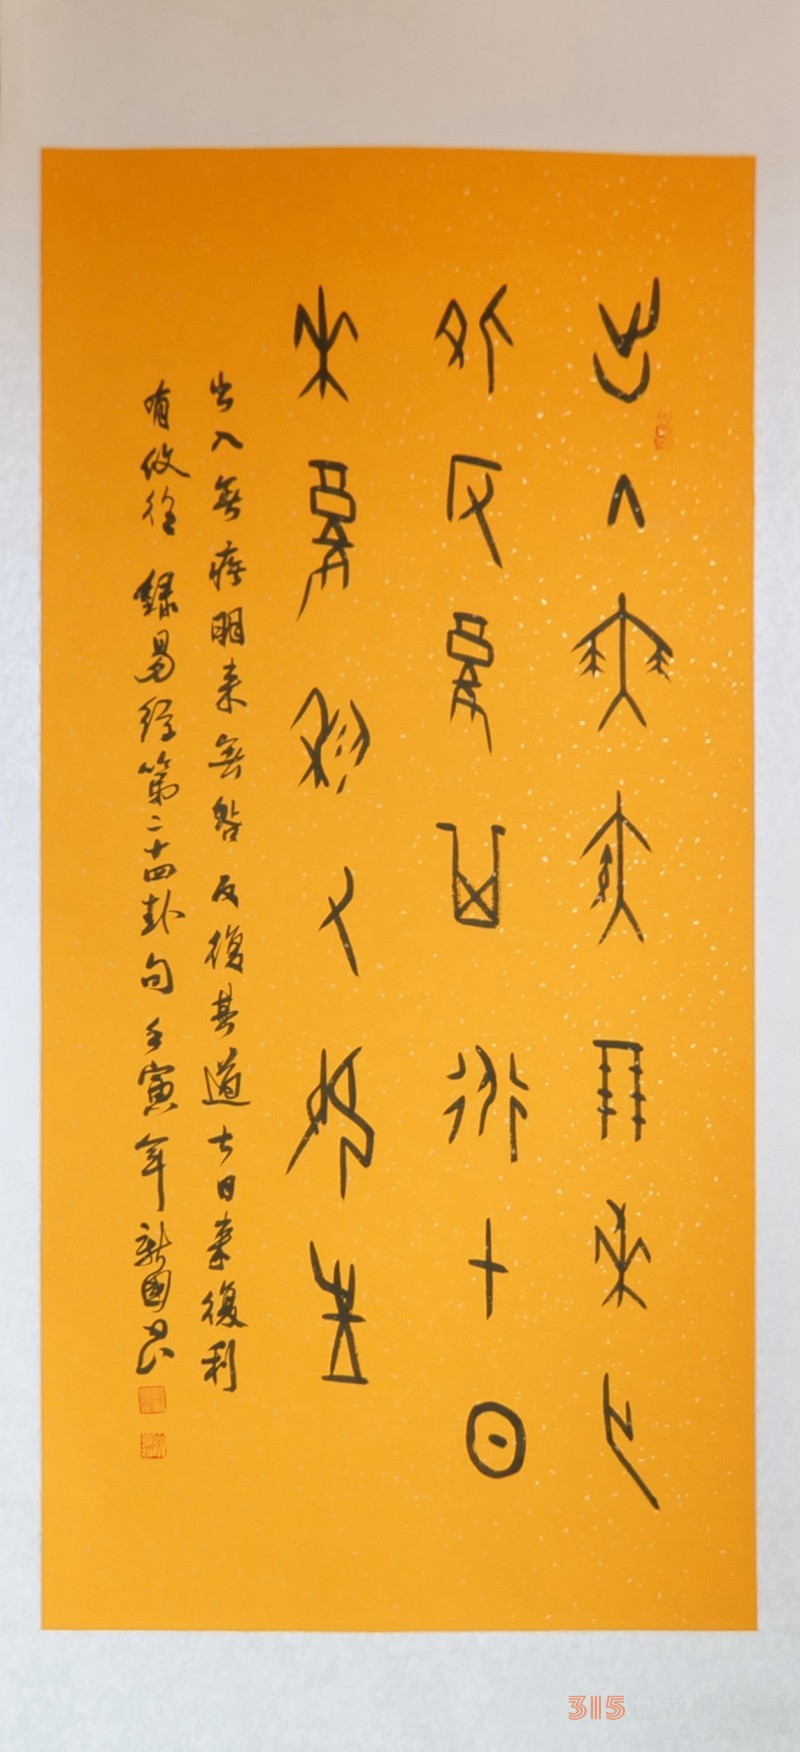 出入無疾朋來亡
咎反復其道七日
來復利又攸往
出入無疾朋来無咎反復其道七日来復利
有攸往 錄易经第二十四卦句 壬寅年 新國
315记者